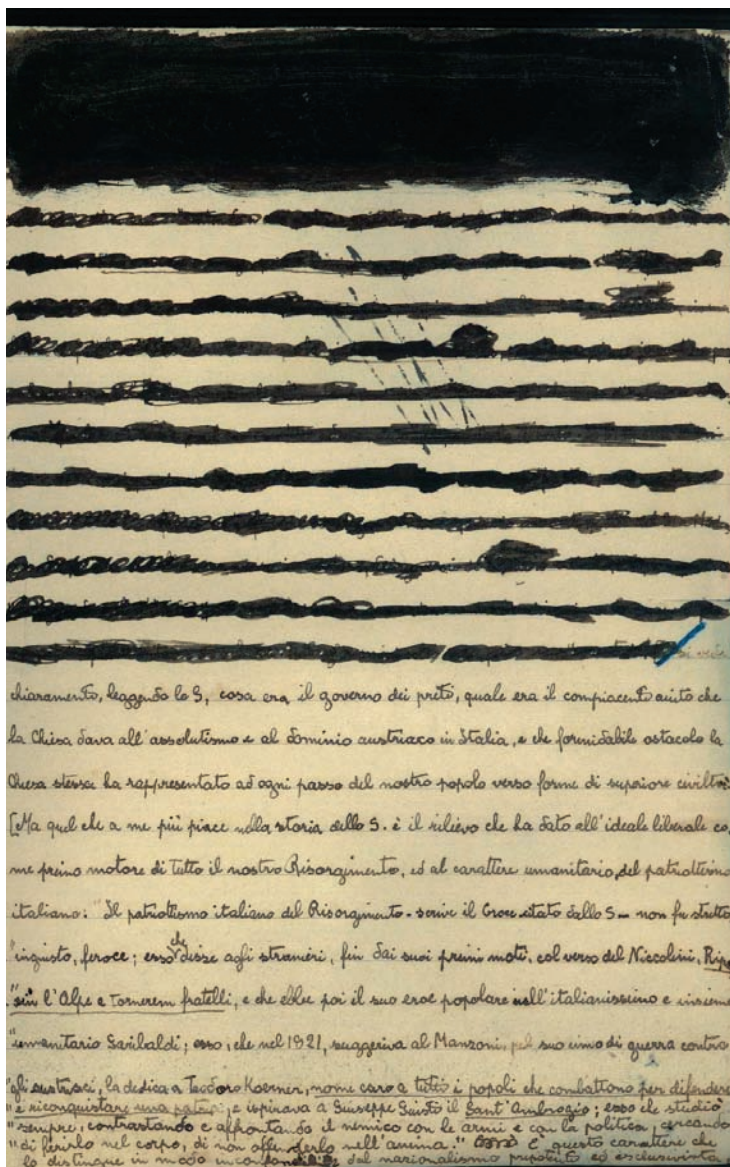 si vede
chiaramente, leggendo lo S, cosa era il governo dei preti, quale era il compiacente aiuto che
la Chiesa dava all'assolutismo e al dominio austriaco in Italia, e che formidabile ostacolo la
Chiesa stessa ha rappresentato ad ogni passo del nostro popolo verso forme di superiore civiltà.
[Ma quel che a me più piace nella storia dello S. è il rilievo che ha dato all'ideale liberale co,
me primo motore di tutto il nostro Risorgimento, ed al carattere umanitario, del patriottismo
italiano: "Il patriottismo italiano del Risorgimento - scrive il Croce citato dallo S - non fu stretto
"ingiusto, feroce; esso che disse agli stranieri, fin dai suoi primi moti, col verso del Niccolini, Ripa
"sin l'Alpe e tornerem fratelli, e che ebbe poi il suo eroe popolare nell'italianissimo e insieme
"umanitario Garibaldi; esso, che nel 1921, suggeriva al Manzoni, pel suo inno di guerra contro
"gli austriaci, la dedica a Teodoro Koerner, nome caro a tutti i popoli che combattono per difendere
"e riconquistare una patria; e ispirava a Giuseppe Giusti il Sant'Ambrogio; esso che studiò
"sempre, contrastando e affrontando il nemico con le armi e con la politica, cercando
"di ferirlo nel corpo, di non offenderlo nell'anima." È questo carattere che
lo distingue in modo inconfondibile dal nazionalismo prepotente ed esclusivista